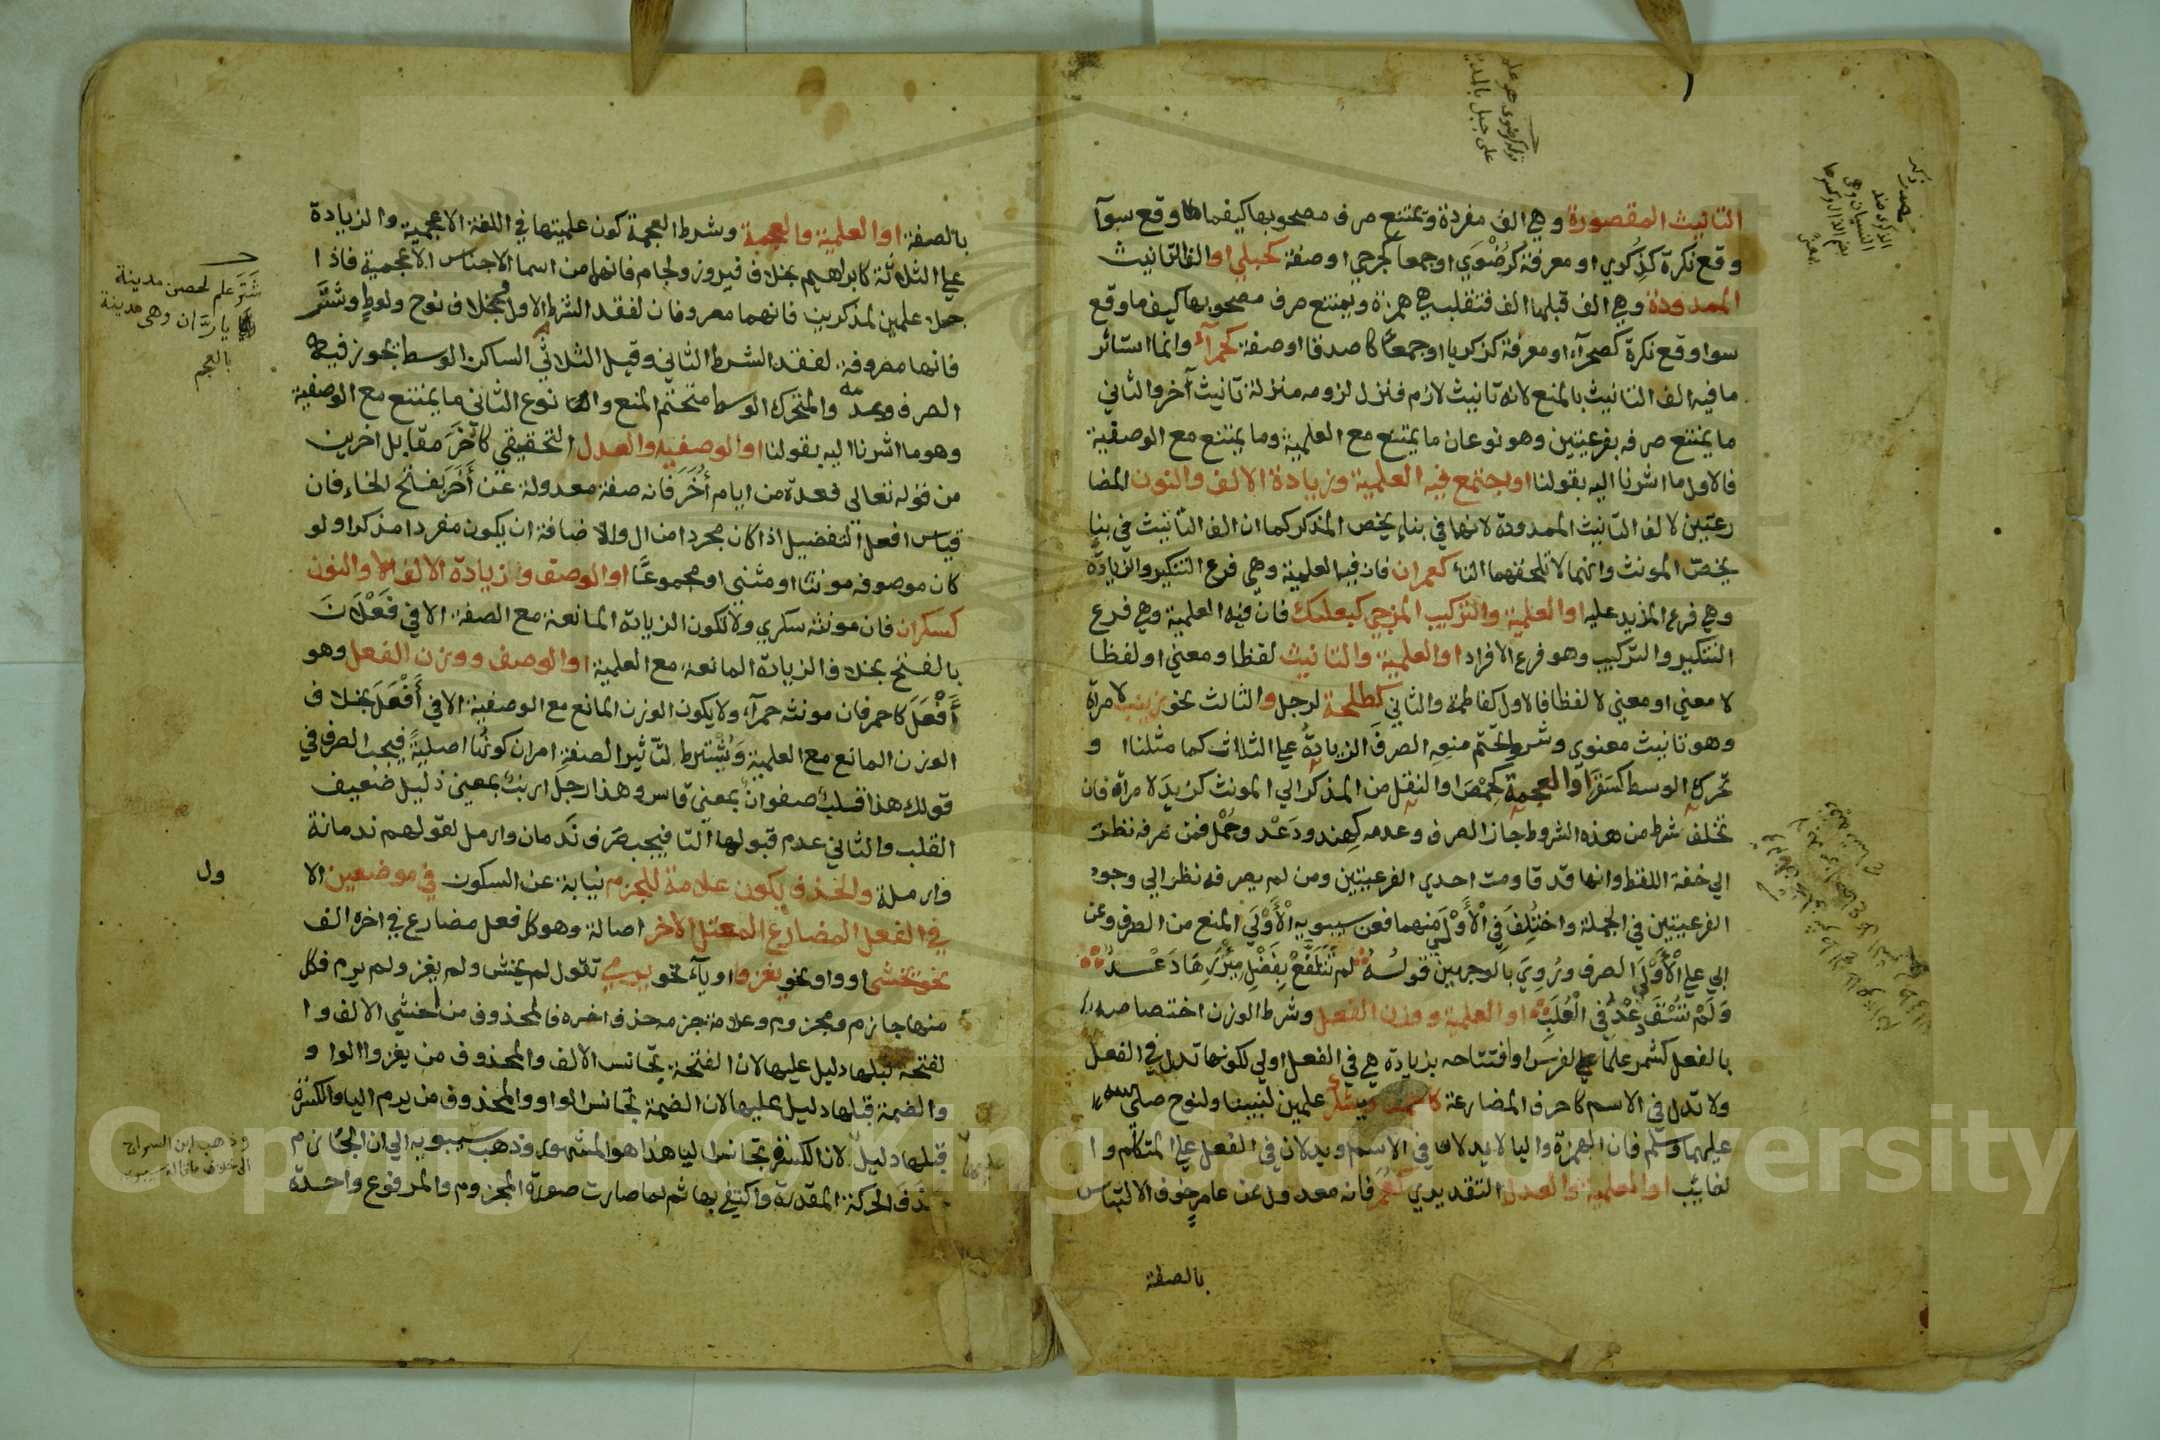 التانيث المقصورة وهي الف مفردة ويمتنع صرف مصحوبها كيفما وقع سوآ
وقع نكرة كذِكْري او معرفة كرَضْوَي او جمعا كجرحي او صفة كحبلي او الف التانيث
الممدودة وهي الف قبلها الف فتقلب هي همزة ويمتنع صرف مصحوبها كيف ما وقع
سوا وقع نكرة كصحرآء او معرفة كزكريا او جمعًا كاصدقا او صفة كحمرآء وانما استاثر
ما فيه الف التانيث بالمنع لانه تانيث لازم فنزل لزومه منزلة تانيث آخر والثاني
ما يمتنع صرفه بفرعيتين وهو نوعان ما يمتنع مع العلمية وما يمتنع مع الوصفية
فالاول ما اشرنا اليه بقولنا او اجتمع فيه العلمية وزيادة الالف والنون المضا
رعتين لالف التانيث الممدودة لانها في بناءٍ يخص المذكر كما ان الف التانيث في بنا
يخصّ المونث وانهما لا تلحقهما التاء كعمران فان فيه العلمية وهي فرع التنكير والزيادة
وهي فرع المزيد عليه او العلمية والتركيب المزجي كبعلبك فان فيه العلمية وهي فرع
التنكير والتركيب وهو فرع الافراد او العلمية والتانيث لفظا ومعني او لفظا
لا معني او معني لا لفظا فالاول كفاطمة والثاني كطلحة لرجل والثالث نحو زينب لامرآة
وهو تانيث معنوي وشرط تحتم منعِه الصرفَ الزيادةُ علي الثلاث كما مثلنا او
تحرك الوسط كسَقَرَ او العجمة كحِمْصَ او النقل من المذكر الي المونث كزيدَ لامرآة فان
تخلف شرط من هذه الشروط جاز الصرف وعدمه كهند ودَعْد وجُمْل فمن صرفه نظر
الي خفة اللفظ وانها قد قاومت احدي الفرعيتين ومن لم يصرفه نظر الي وجود
الفرعيتين في الجملة واختُلِفَ فِي الْأَوْلَي منهما فعن سيبويه الْأَوْلَي المنع من الصرف وعن
ابي علي الْأَوْلَي الصرف ورُوِيَ بالوجهين قولـهُ لم تَتَلَفَّعْ بِفَضْلِ مِئْزَرِهَا دَعْــدُ
وَلَمْ تُسْقَ دَعْدُ فِي الْعُلَبِ او العلمية ووزن الفعل وشرط الوزن اختصاصه
بالفعل كشمر علمًا علي لفرس او افتتاحه بزيادة هي في الفعل اولي لكونها تدل في الفعل
ولا تدل في الاسم كاحرف المضارعة كاحمد ويشكر علمين لنبينا ولنوح صلي الله
عليهما وسلم فان الهمزة واليا لا يدلان في الاسم ويدلان في الفعل علي المتكلم وا
لغائب او العلمية والعدل التقديري كعُمَر فانه معدول عن عامر خوف الالتباس
بالصفة
بالصفة او العلمية والعجمة وشرط العجمة كون علميتها في اللغة الاعجمية والزيادة
علي الثلاثة كابراهيم بخلاف فيروز ولجام فانهما من اسما الاجناس الاعجمية فاذا
جعلا علمين لمذكرين فانهما مصروفان لفقد الشرط الاول وبخلاف نوح ولوطٍ وشَتَر
فانها مصروفة لفقد الشرط الثاني وقيل الثلاثي الساكن الوسط يجوز فيه
الصرف وعدمه والمتحرك الوسط متحتم المنع والنوع الثاني ما يمتنع مع الوصفية
وهو ما اشرنا اليه بقولنا او الوصفية والعدل التحقيقي كاخَرَ مقابل اخرين
من قوله تعالي فعدّة من ايام أُخَرَ فانه صفة معدولة عن أَخَرَ بفتح الخاء فان
قياس افعل التفضيل اذا كان مجردا من ال والاضافة ان يكون مفردا مذكرا ولو
كان موصوفه مونثا او مثني او مجموعًا او الوصف وزيادة الالف والنون
كسكران فان مونثه سكري ولا تكون الزيادة المانعة مع الصفة الا في فَعْلَانَ
بالفتح بخلاف الزيادة المانعة مع العلمية او الوصف ووزن الفعل وهو
أَفْعَلَ كاحمر فان مونثه حمرآء ولا يكون الوزن المانع مع الوصفية الا في أَفْعَلَ بخلاف
الوزن المانع مع العلمية وَيُشْترط لتاثير الصفة امران كونُها اصليةً فيجب الصرف في
قولك هذا قلبٌ صفوانٌ بمعني قاس وهذا رجل ارنبٌ بمعني ذليل ضعيف
القلب والثاني عدم قبولها التا فيجب صرف نَدمان وارمل لقولهم ندمانة
وارملة والحذف يكون علامة للجزم نيابة عن السكون في موضعين الا
ول
في الفعل المضارع المعتل الاخر اصالة وهو كل فعل مضارع في اخره الف
نحو يخشي او واو نحو يغزوا او يآء نحو يرمي تقول لم يخش ولم يغز ولم يرم فكل
منها جازم ومجزوم وعلامة جزمه حذف اخره فالمحذوف من يخشي الالف وا
لفتحة قبلها دليل عليها لان الفتحة تجانس الالف والمحذوف من يغزوا الواو
والضمة قبلها دليل عليها لان الضمة تجانس الواو والمحذوف من يرم اليا والكسرة
قبلها دليل لان الكسرة تجانس اليا هذا هو المشهور وذهب سيبويه الي ان الجازم
حذف الحركة المقدرة واكتفي بها ثم لما صارت صورة المجزوم والمرفوع واحدة
شَتَر علم لحصن مدينة
يارّان وهي مدينة
بالعجم
وذهب ابن السراج
Copyright © King Saud University